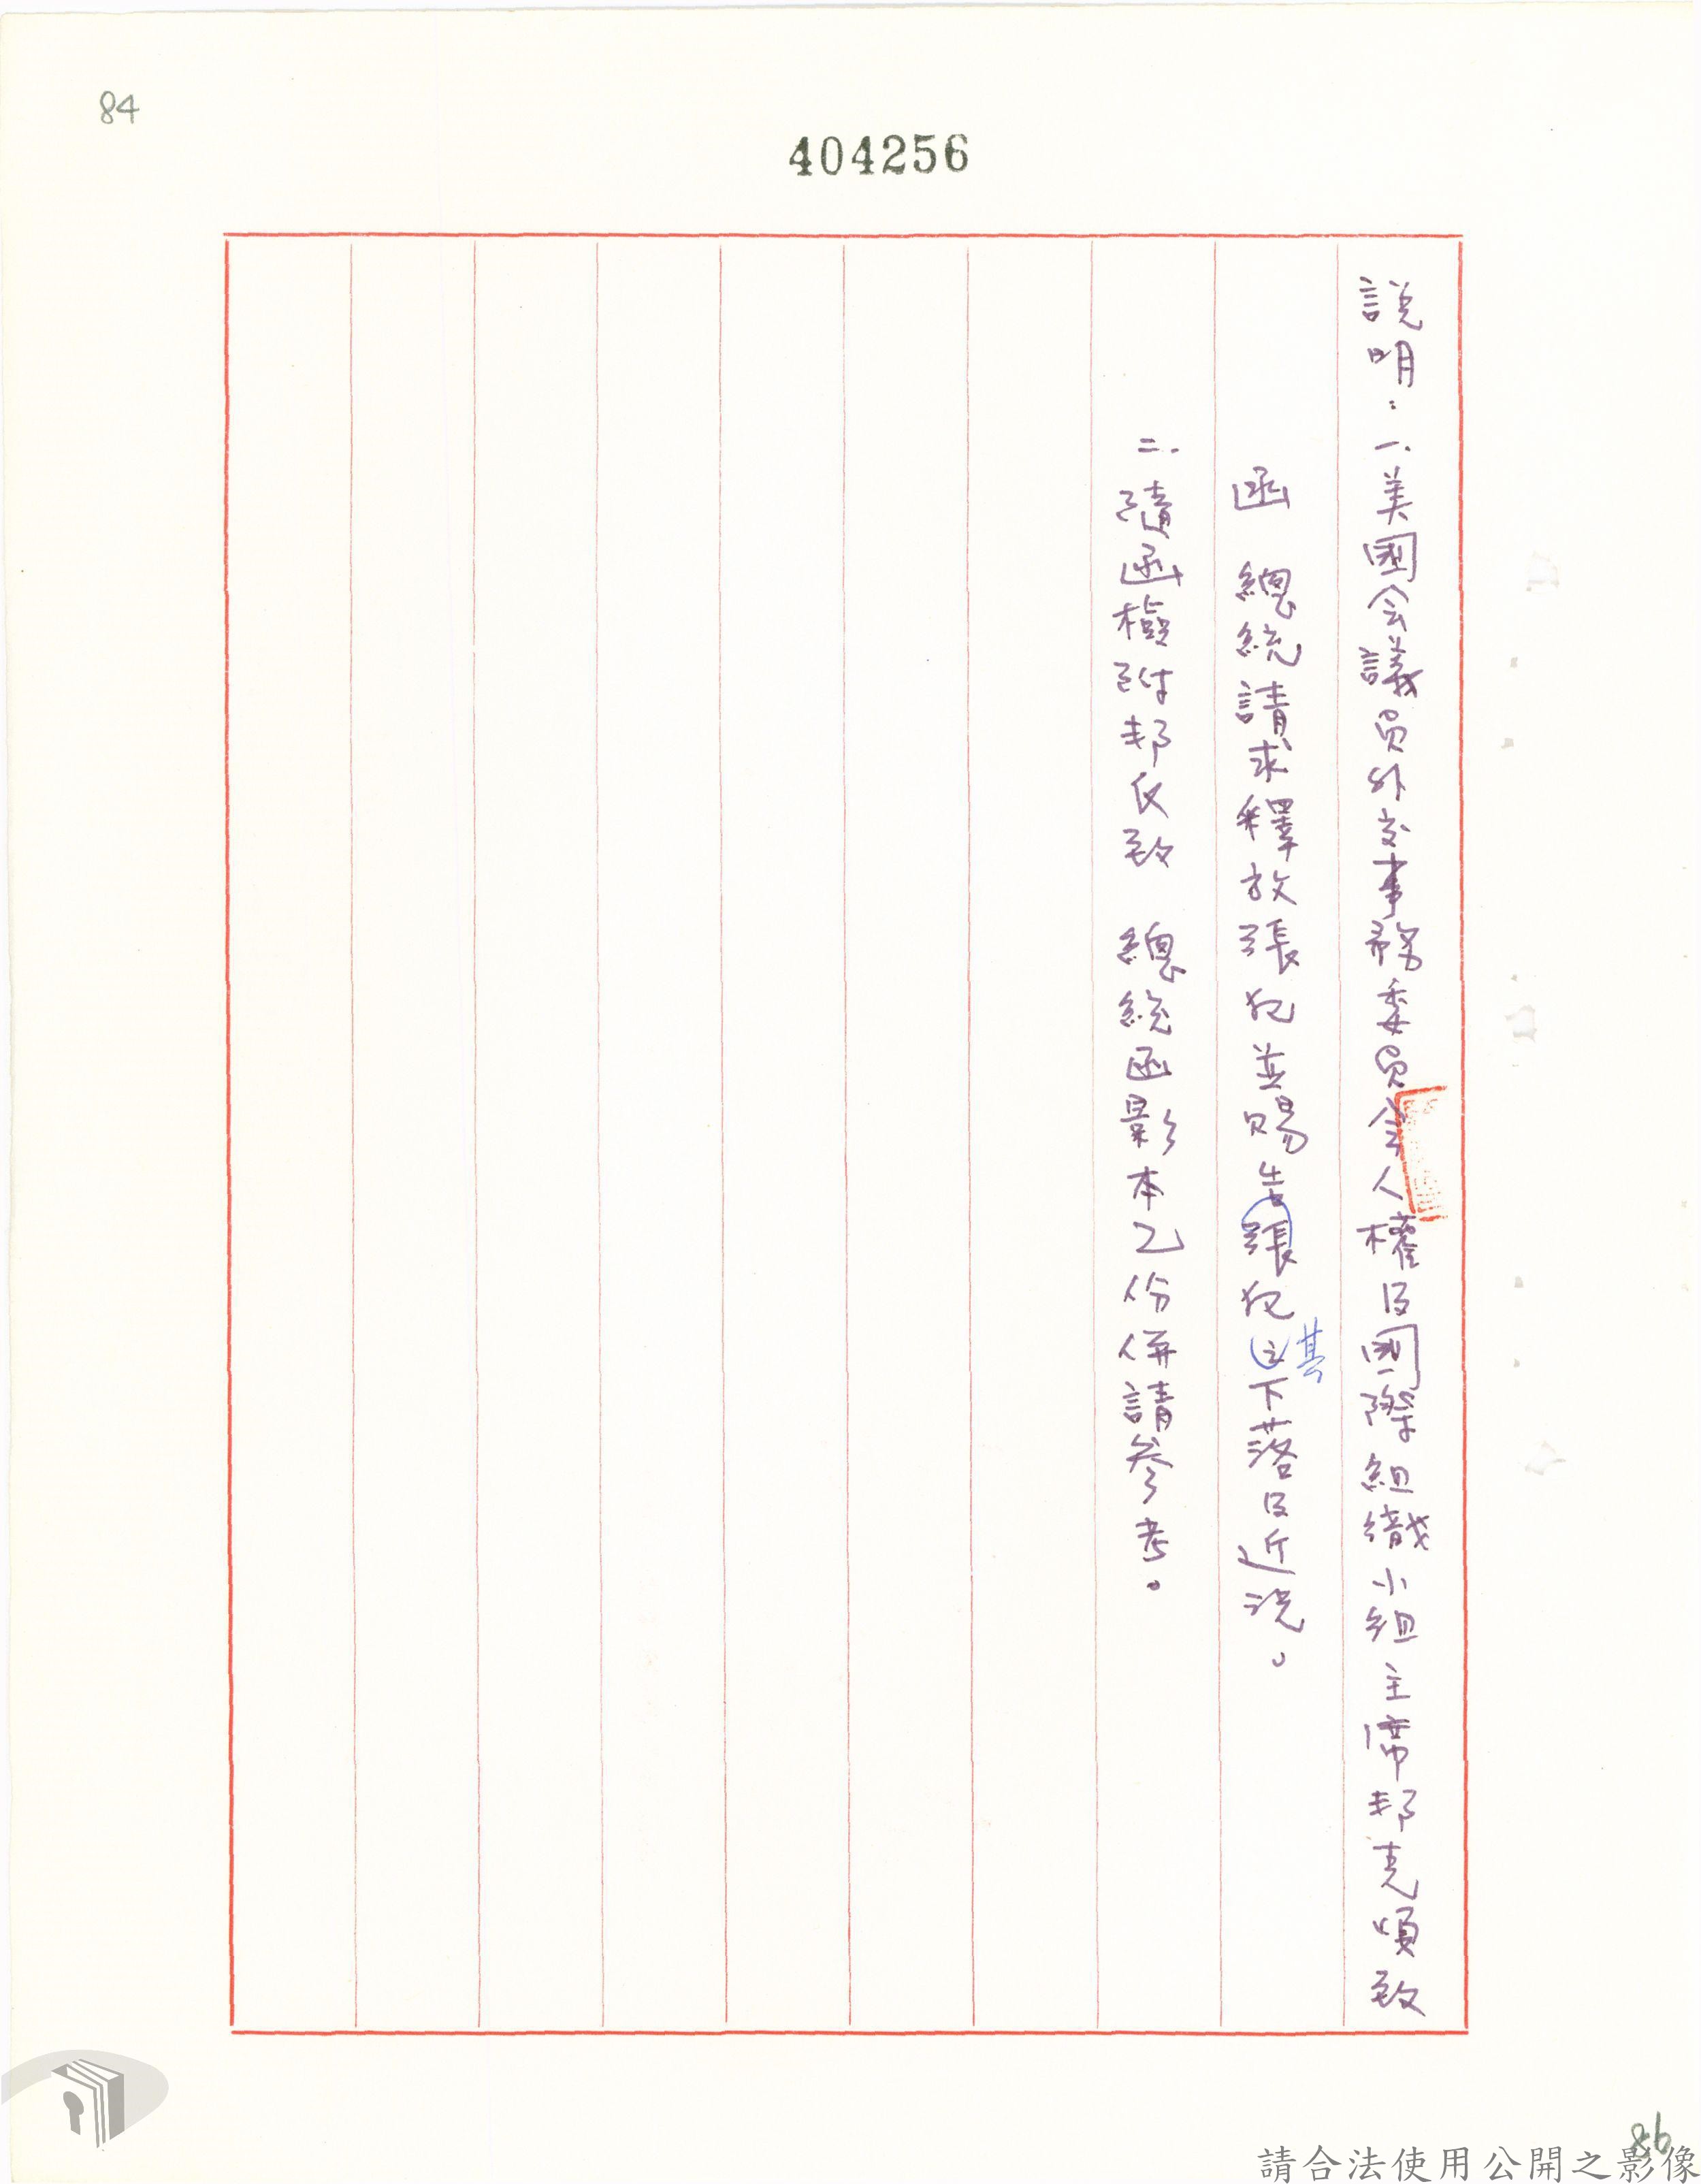 84
404256
說明：一、美國会議員外交事務委員会人權及國際組織小組主席邦克頌致
函　總統請求釋放張犯並賜告張犯之下落及近況。
其
二、隨函檢附邦氏致　總統函影本乙份併請參考。
86
請合法使用公開之影像